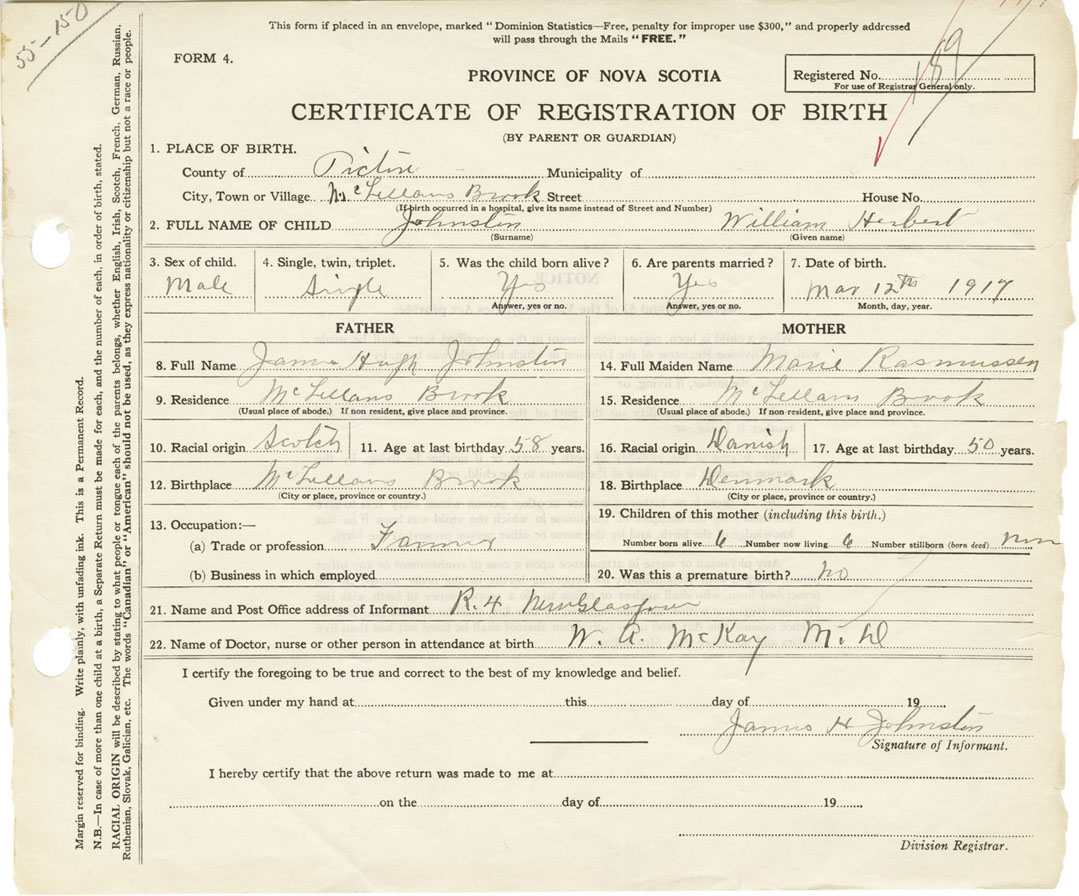 55-150
This form if placed in an envelope, marked "Dominion Statistics—Free, penalty for improper use $300," and properly addressed
will pass through the Mails "FREE."
FORM 4.
PROVINCE OF NOVA SCOTIA
Registered No. 189
For use of Registrar General only.
CERTIFICATE OF REGISTRATION OF BIRTH
(BY PARENT OR GUARDIAN)
1. PLACE OF BIRTH.
County of Pictou Municipality of
City, Town or Village McLellans Brook Street House No.
(If birth occurred in a hospital, give its name instead of Street and Number)
2. FULL NAME OF CHILD Johnston William Herbert
(Surname) (Given name)
3. Sex of child. 4. Single, twin, triplet. 5. Was the child born alive? 6. Are parents married? 7. Date of birth.
Male Single Yes Yes Mar 12th 1917
Answer, yes or no. Answer, yes or no. Month, day, year.
FATHER MOTHER
8. Full Name James Hugh Johnston 14. Full Maiden Name Marie Rasmussen
9. Residence McLellans Brook 15. Residence McLellans Brook
(Usual place of abode.) If non resident, give place and province. (Usual place of abode.) If non resident, give place and province.
10. Racial origin Scotch 11. Age at last birthday 58 years. 16. Racial origin Danish 17. Age at last birthday 50 years.
12. Birthplace McLellans Brook 18. Birthplace Denmark
(City or place, province or country.) (City or place, province or country.)
13. Occupation:— 19. Children of this mother (including this birth.)
(a) Trade or profession Farmer Number born alive 6 Number now living 6 Number stillborn (born dead) non
(b) Business in which employed 20. Was this a premature birth? no
21. Name and Post Office address of Informant R.4 New Glasgow
22. Name of Doctor, nurse or other person in attendance at birth W. A. McKay M.D
I certify the foregoing to be true and correct to the best of my knowledge and belief.
Given under my hand at this day of 19
James H Johnston
Signature of Informant.
I hereby certify that the above return was made to me at
on the day of 19
Division Registrar.
Margin reserved for binding. Write plainly, with unfading ink. This is a Permanent Record.
N.B.—In case of more than one child at a birth, a Separate Return must be made for each, and the number of each, in order of birth, stated.
RACIAL ORIGIN will be described by stating to what people or tongue each of the parents belongs, whether English, Irish, Scotch, French, German, Russian,
Ruthenian, Slovak, Galician, etc. The words "Canadian" or "American" should not be used, as they express nationality or citizenship but not a race or people.